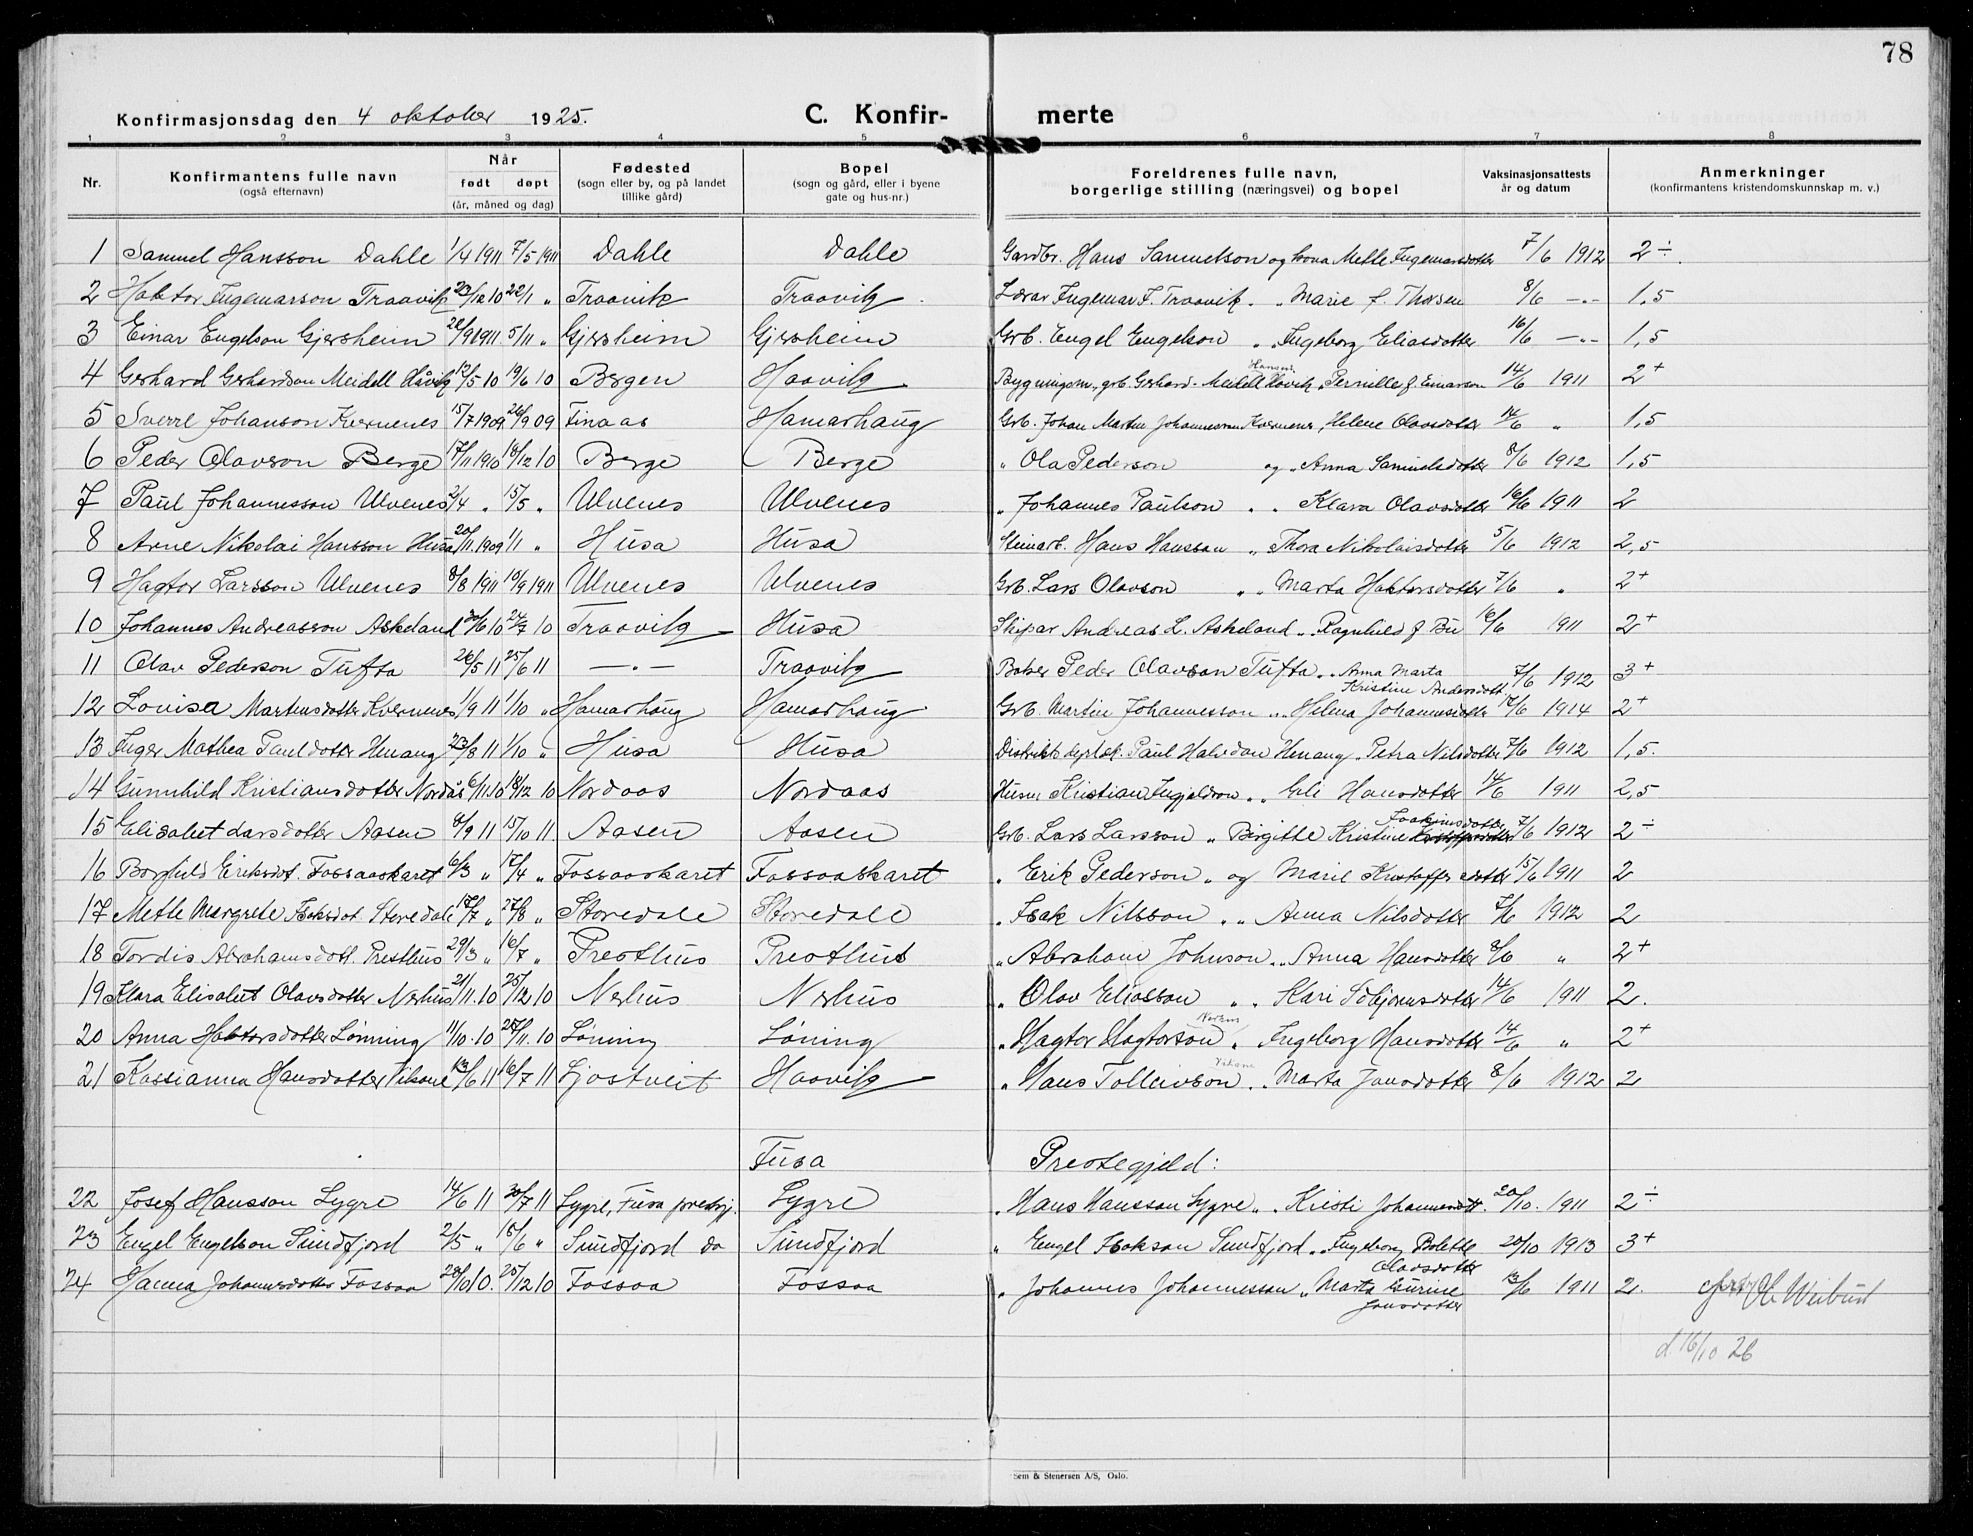 78
Konfirmasjonsdag den 4 oktober 1925. C. Konfir- merte
1 2 3 4 5 6 7 8
Nr. Konfirmantens fulle navn (også efternavn) Når født døpt (år, måned og dag) Fødested (sogn eller by, og på landet tillike gård) Bopel (sogn og gård, eller i byene gate og hus-nr.) Foreldrenes fulle navn, borgerlige stilling (næringsvei) og bopel Vaksinasjonsattests år og datum Anmerkninger (konfirmantens kristendomskunnskap m. v.)
1 Samuel Hansson Dahle 1/4 1911 7/5 1911 Dahle Dahle Gardbr. Hans Samuelson og kona Mette Ingemarsdotter 7/6 1912 2÷
2 Haktor Ingemarson Traavik 23/12 10 22/1 „ Traavik Traavik Lærar Ingemar J. Traavik „ Marie f. Thorsen 8/6 —„— 1,5
3 Einar Engelson Gjersheim 2/9 1911 5/11 „ Gjersheim Gjersheim Grb. Engel Engelson „ „ Ingeborg Eliasdotter 16/6 —„— 1,5
4 Gerhard Gerhardson Meidell Håvik 12/5 10 19/6 10 Bergen Haavik Bygningsm., grb. Gerhard Meidell Hansen Hovik, Pernille f. Einarson 14/6 1911 2+
5 Sverre Johanson Kvernenes 15/7 1909 26/9 09 Finaas Hamarhaug Grb. Johan Martin Johannesson Kvernenes, Helene Olavsdotter 14/6 „ 1,5
6 Peder Olavson Berge 17/11 1910 18/12 10 Berge Berge „ Ola Pederson og „ Anna Samuelsdotter 8/6 1912 1,5
7 Paul Johannesson Ulvenes 2/4 „ 15/5 „ Ulvenes Ulvenes „ Johannes Paulson „ „ Klara Olavsdotter 16/6 1911 2
8 Arne Nikolai Hansson Husa 20/11 1909 1/1 „ Husa Husa Steinarb. Hans Hansson „ Thora Nikolaisdotter 5/6 1912 2,5
9 Hagtor Larsson Ulvenes 8/8 1911 10/9 1911 Ulvenes Ulvenes Grb. Lars Olavson „ „ Marta Haktorsdotter 7/6 „ 2+
10 Johannes Andreasson Askeland 20/6 10 24/7 10 Traavik Husa Skipar Andreas L. Askeland „ „ Ragnhild f. Bu 16/6 1911 2+
11 Olav Pederson Tufta 26/5 11 25/6 11 —„— Traavik Baker Peder Olavson Tufta „ „ Anna Marta Kristine Andersdott. 7/6 1912 3+
12 Lovisa Martinsdotter Kvernenes 1/9 11 1/10 „ Hamarhaug Hamarhaug Grb. Martin Johannesson „ „ Helena Johannesdotter 17/6 1914 2+
13 Inger Mathea Paulsdotter Henang 23/8 11 1/10 „ Husa Husa Distrikts dyrlæk. Paul Halvdan Henang „ Petra Nilsdotter 7/6 1912 1,5.
14 Gunnhild Kristiansdotter Nordås 6/11 10 18/12 10 Nordaas Nordaas Husm. Kristian Ingjeldson „ „ Eli Hansdotter 14/6 1911 2,5
15 Elisabet Larsdotter Aasen 8/9 11 15/10 11 Aasen Aasen Grb. Lars Larsson „ Birgitte Kristine Joakimsdotter 7/6 1912 2÷
16 Borghild Eriksdot. Fossaaskaret 6/3 „ 17/4 „ Fossaaskaret Fossaaskaret „ Erik Pederson „ og Marie Kristoffersdotter 15/6 1911 2
17 Mette Margrete Isaksdot. Storedale 17/7 „ 27/8 „ Storedale Storedale „ Isak Nilsson „ „ Anna Nilsdotter 7/6 1912 2
18 Tordis Abrahamsdott. Presthus 29/3 „ 16/7 „ Presthus Presthus „ Abraham Johnson „ „ Anna Hansdotter 8/6 „ 2+
19 Klara Elisabet Olavsdotter Nerhus 21/11 10 25/12 10 Nerhus Nerhus „ Olav Eliasson „ „ Kari 14/6 1911 2.
20 Anna Haktorsdotter Lønning 11/10 10 20/11 10 Løning Løning „ Hagtor Hagtorson Nerhus „ Ingeborg Hansdotter 14/6 „ 2+
21 Kassianna Hansdotter Vikane 13/6 11 16/7 11 Ljostveit Haavik „ Hans Tolleivson Vikane „ „ Marta Jansdotter 8/6 1912 2
Fusa Prestegjeld:
22 Josef Hansson Lygre 14/6 11 30/7 11 Lygre, Fusa prestgj. Lygre „ Hans Hansson Lygre „ „ Kristi Johannesdott. 20/10 1911 2÷
23 Engel Engelson Sundfjord 2/5 „ 18/6 „ Sundfjord do Sundfjord „ Engel Isakson Sundfjord „ Ingeborg Bolette Olavsdotter 20/10 1913 3+
24 Hanna Johannesdotter Fossaa 28/10 10. 25/12 10 Fossaa Fossaa „ Johannes Johannesson „ Marta Gurine Jonsdotter 13/6 1911 2. Ole Weibust
d. 16/10 26
Sem & Stenersen A/S, Oslo.